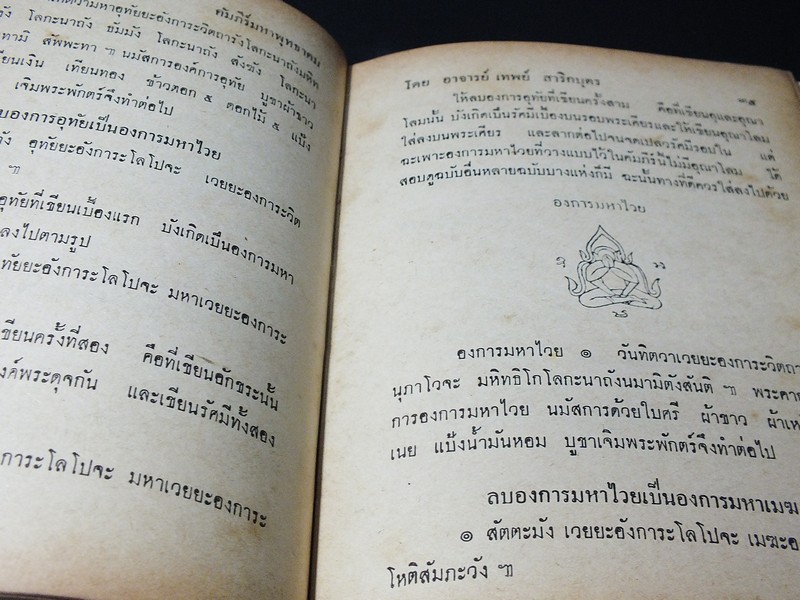 คัมภีร์มหาพุทธาคม
โลกะนาถัง ธัมมัง โลกะนาถัง สังฆัง โลกะนา
สัพพะทา ๚ นมัสการองค์การอุทัย บูชาผ้าขาว
เทียนเงิน เทียนทอง ข้าวตอก ๕ ดอกไม้ ๕ แป้ง
เจิมพระพักตร์จึงทำต่อไป
ลบองการอุทัยเป็นองการมหาไวย
อุทัยยะอังการะโลโปจะ เวยยะองการะวิต
๚
อุทัยที่เขียนเบื้องแรก บังเกิดเป็นองการมหา
ลงไปตามรูป
อุทัยยะอังการะโลโปจะ มหาเวยยะอังการะ
เขียนครั้งที่สอง คือที่เขียนอักขระนั้น
องค์พระดุจกัน และเขียนรัศมีทั้งสอง
การะโลโปจะ มหาเวยยะอังการะ
โดย อาจารย์ เทพย์ สาริกบุตร
๓๕
ให้ลบองการอุทัยที่เขียนครั้งสาม คือที่เขียนอุและอุณา
โลมนั้น บังเกิดเป็นรัศมีเบื้องบนรอบพระเศียรและให้เขียนอุณาโลม
ใส่ลงบนพระเศียร และลากต่อไปจนจดเปลวรัศมีรอบใน แต่
ฉะเพาะองการมหาไวยที่วางแบบไว้ในคัมภีร์นี้ไม่มีอุณาโลม ได้
สอบดูฉบับอื่นหลายฉบับบางแห่งก็มี ฉะนั้นทางที่ดีควรใส่ลงไปด้วย
องการมหาไวย
องการมหาไวย ๑ วันทิตวาเวยยะอังการะวิตถา
นุภาโวจะ มหิทธิโกโลกะนาถังนมามิตังสันติ ๚ พระคาถ
การองการมหาไวย นมัสการด้วยใบศรี ผ้าขาว ผ้าเห
เนย แป้งน้ำมันหอม บูชาเจิมพระพักตร์จึงทำต่อไป
ลบองการมหาไวยเป็นองการมหาเมฆ
๑ สัตตะมัง เวยยะอังการะโลโปจะ เมฆะอ
โหติสัมภะวัง ๚